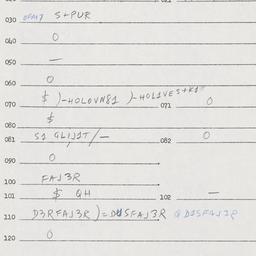 030 S+PUR
040 O
050 —
060 O
070 $ )-HOLOVN81 )-HO11VES+K1 071 O
080 $
081 S1 GLIJ1T/— 082 O
090 O
100 FAJ3R
101 $ QH 102 —
110 D3RFAJ3R)=D1SFAJ3R @D1SFAJ3R
120 O